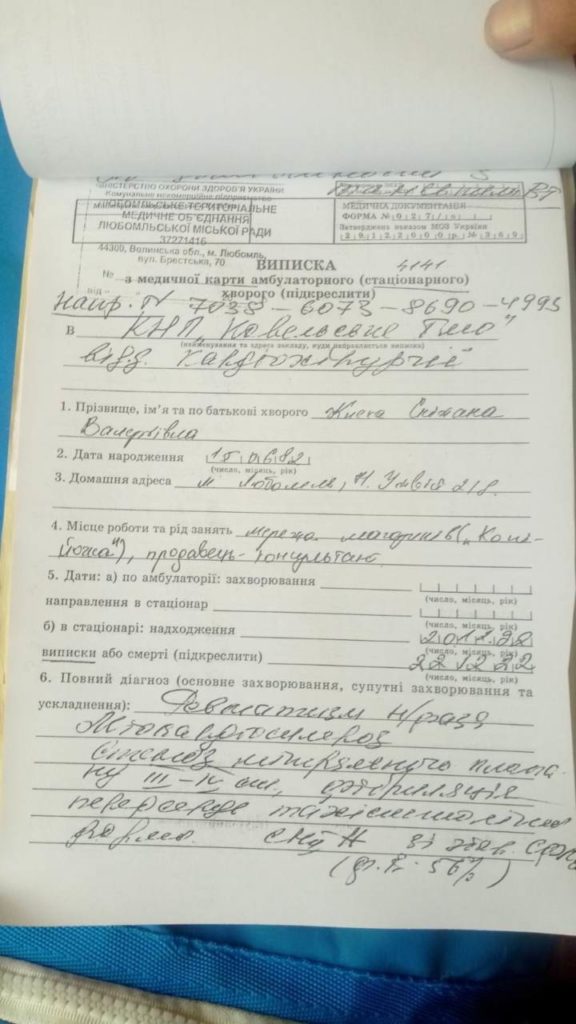 МІНІСТЕРСТВО ОХОРОНИ ЗДОРОВ'Я УКРАЇНИ
Комунальне некомерційне підприємство
ЛЮБОМЛЬСЬКЕ ТЕРИТОРІАЛЬНЕ
МЕДИЧНЕ ОБ'ЄДНАННЯ
ЛЮБОМЛЬСЬКОЇ МІСЬКОЇ РАДИ
37271416
44300, Волинська обл., м. Любомль,
вул. Брестська, 70
№
від
МЕДИЧНА ДОКУМЕНТАЦІЯ
ФОРМА № 0 2 7 / о
Затверджена наказом МОЗ України
2 9 1 2 2 0 0 0 р. № 3 6 9
ВИПИСКА 4141
з медичної карти амбулаторного (стаціонарного)
хворого (підкреслити)
Напр. N 7038 - 6073 - 8690 - 4995
В КНП "Ковельське тмо"
(найменування та адреса закладу, куди направляється виписка)
відд. кардіохірургії
1. Прізвище, ім'я та по батькові хворого Сніжана
Валеріївна
2. Дата народження
(число, місяць, рік)
3. Домашня адреса м Любомль, 218.
4. Місце роботи та рід занять мережа магазинів ("Копі-
йочка"), продавець-консультант
5. Дати: а) по амбулаторії: захворювання
(число, місяць, рік)
направлення в стаціонар
(число, місяць, рік)
б) в стаціонарі: надходження 20 11 22
(число, місяць, рік)
виписки або смерті (підкреслити) 22 12 22
(число, місяць, рік)
6. Повний діагноз (основне захворювання, супутні захворювання та
ускладнення): Ревматизм н/фаза
Міокардіосклероз
Стеноз мітрального клапа-
ну III-IV ст., фібриляція
передсердь тахісистолічна
форма. СН ІІ зі збер. СФЛШ
(ф.в. 56%)